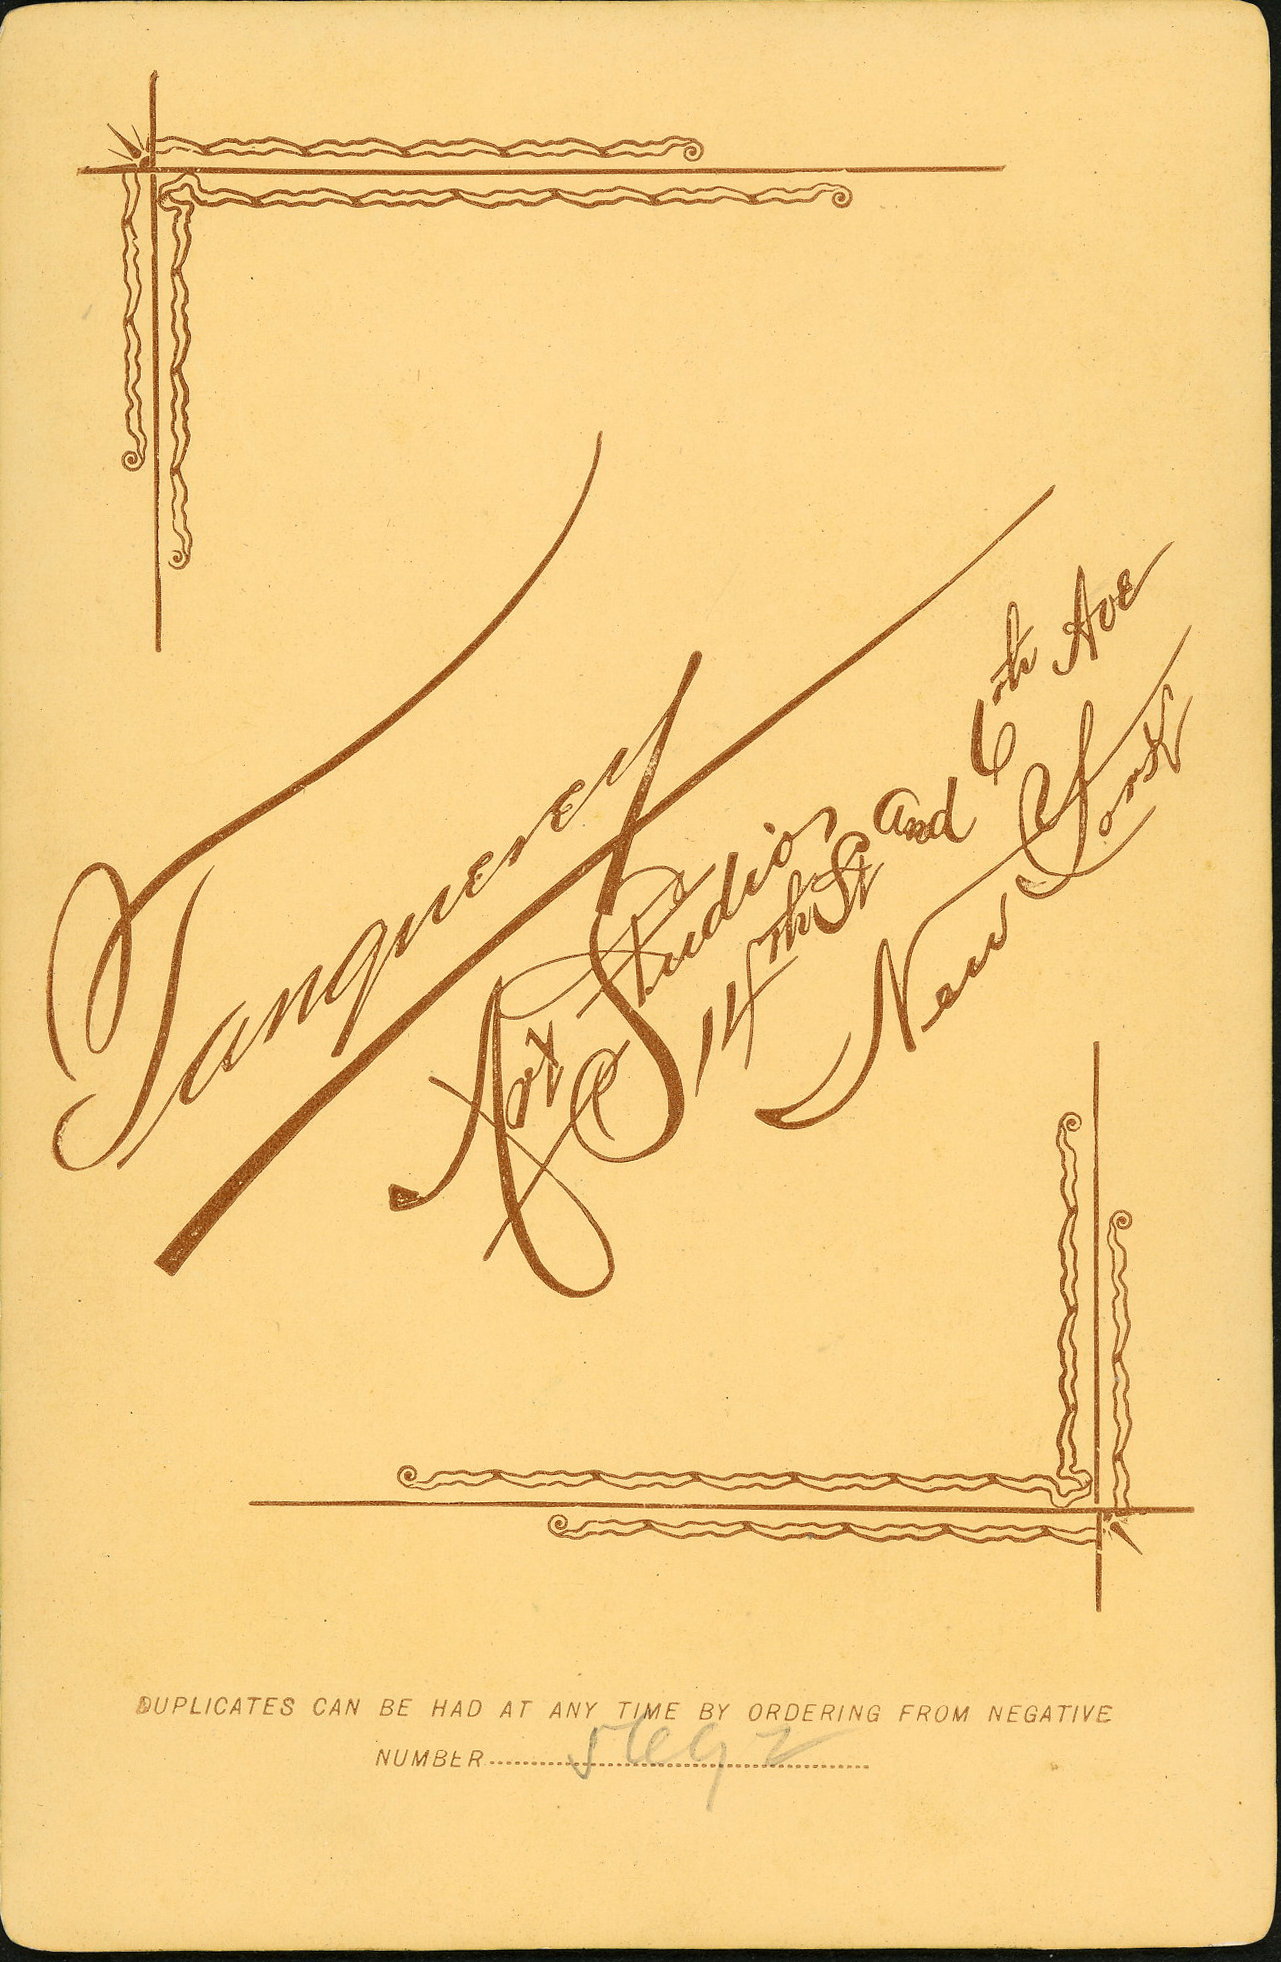 Tanquerey
Art Studio,
14th St and 6th Ave
New York
DUPLICATES CAN BE HAD AT ANY TIME BY ORDERING FROM NEGATIVE
NUMBER